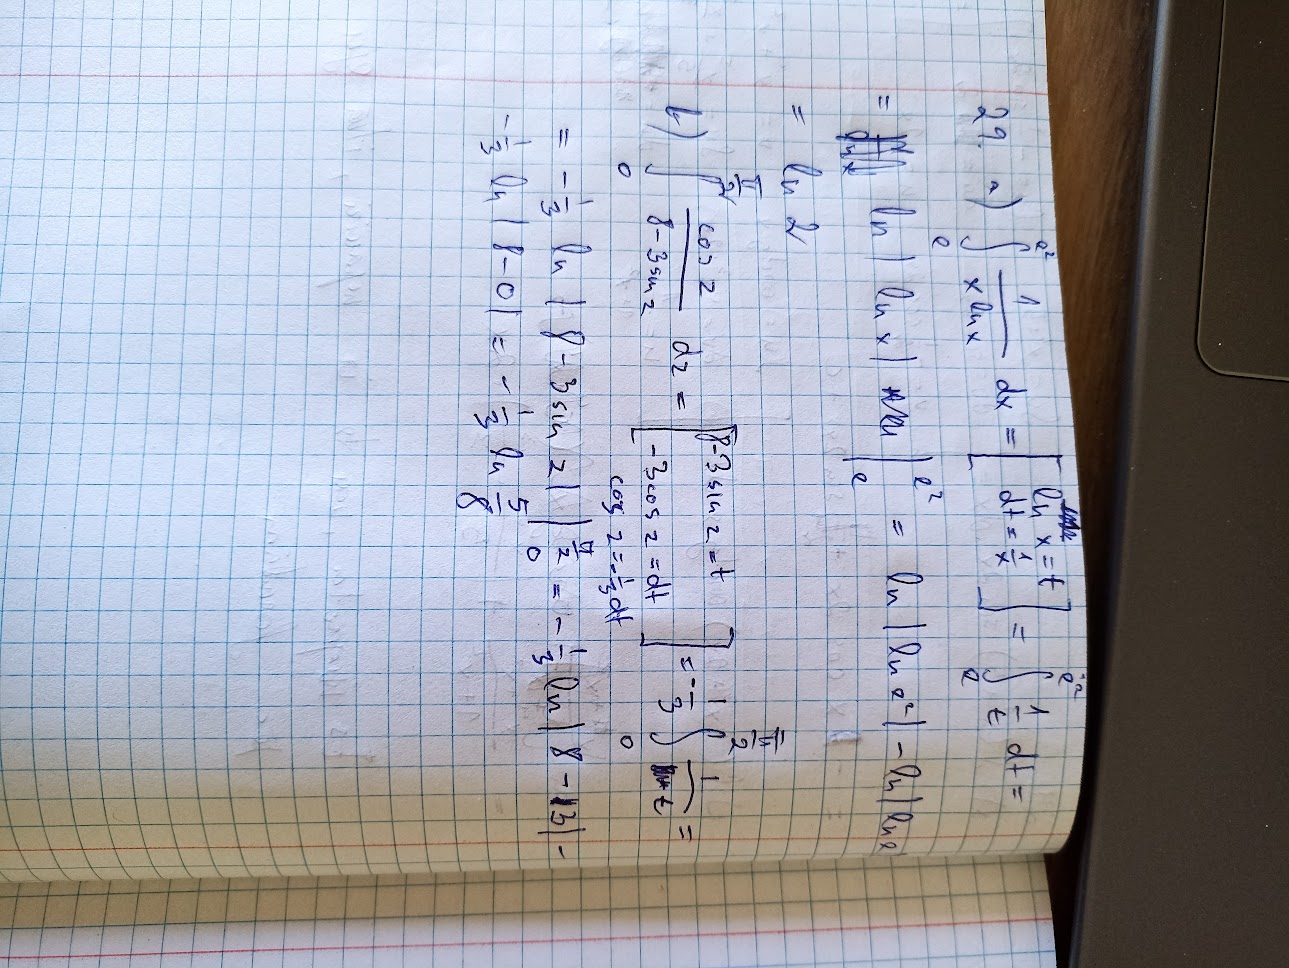 29. a) ∫_e^{e²} 1/(x ln x) dx = [ln x = t
dt = 1/x] = ∫_e^{e²} 1/t dt =
= ln | ln x | |_e^{e²} = ln | ln e² | - ln | ln e
= ln 2
b) ∫_0^{π/2} cos z/(8 - 3 sin z) dz = [8 - 3 sin z = t
-3 cos z = dt
cos z = -1/3 dt] = -1/3 ∫_0^{π/2} 1/t =
= -1/3 ln | 8 - 3 sin z | |_0^{π/2} = -1/3 ln | 8 - 3 | -
-1/3 ln | 8 - 0 | = -1/3 ln 5/8